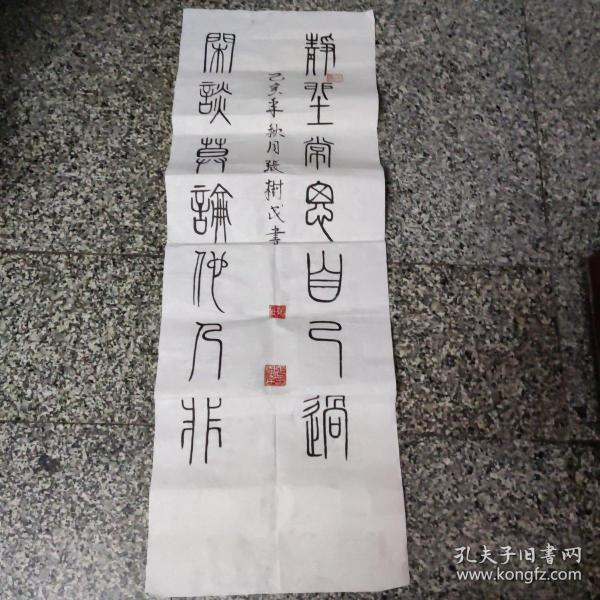 靜坐常思自己過
閑談莫論他人非
己亥年秋月張樹民書
孔夫子旧書网
www.kongfz.com